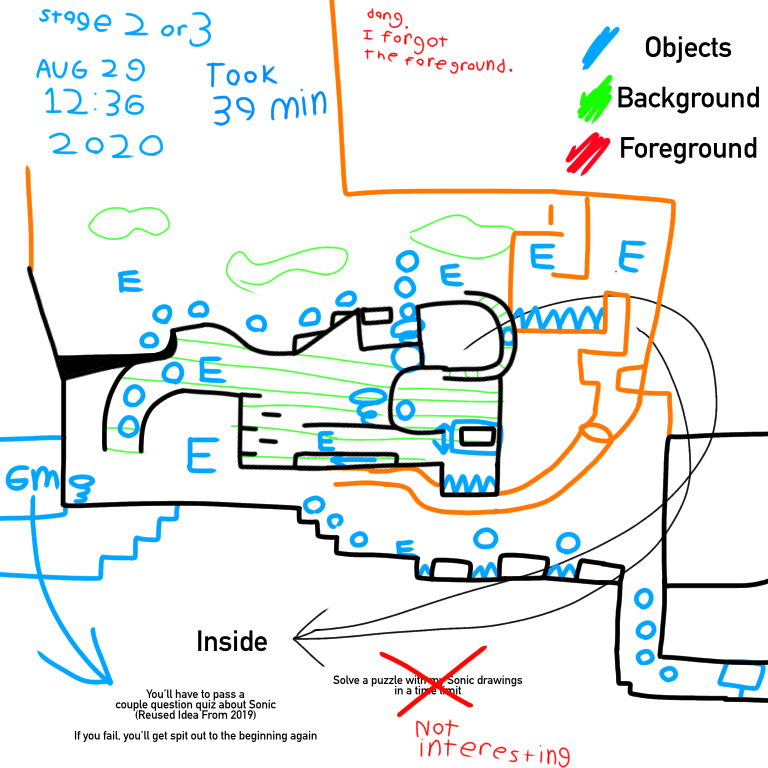 stage 2 or 3
AUG 29
12:36
2020
Took
39 min
dang.
I forgot
the foreground.
Objects
Background
Foreground
E
E
E
E
E
E
E
E
Gm
Inside
You'll have to pass a
couple question quiz about Sonic
(Reused Idea From 2019)
If you fail, you'll get spit out to the beginning again
Solve a puzzle with my Sonic drawings
in a time limit
Not
interesting